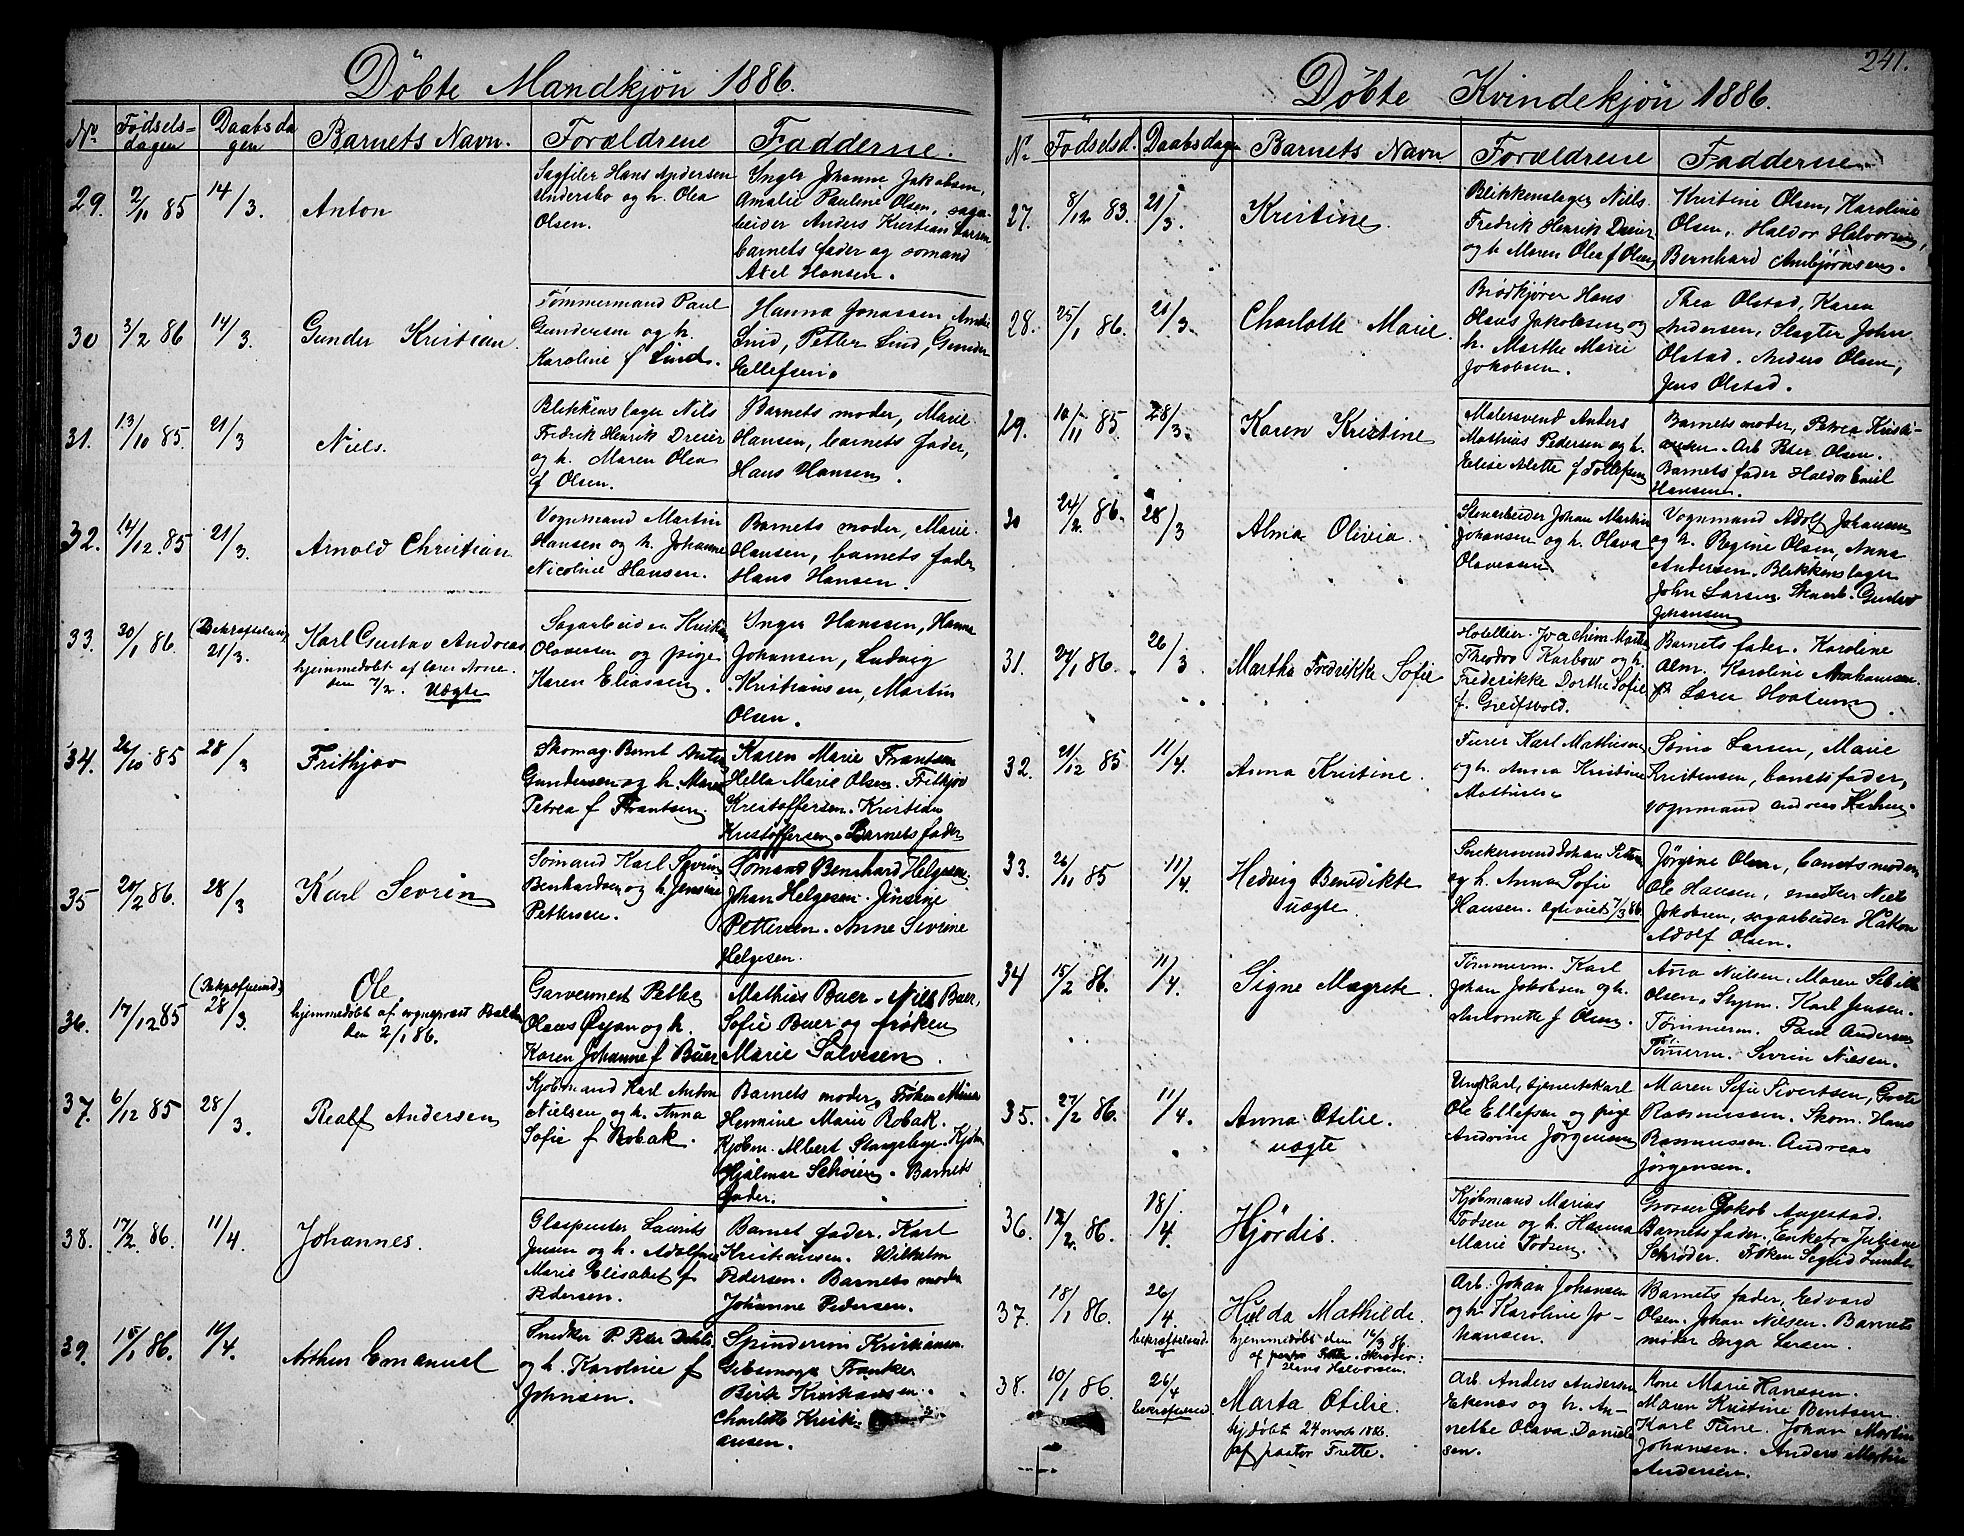 Döbte Mandkjön 1886.
No
Födsels=
dagen
Daabsda
gen
Barnets Navn.
Forældrene
Fadderne.
29.
2/11 85
14/3.
Anton
Sagfiler Hans Andersen
Undersbo og h. Olea
Olsen.
Inger Johanne Jakobsen,
Amalie Pauline Olsen, saga
beider Anders Kristian Larsen
barnets fader og sømand
Axel Hansen.
30
3/2 86
14/3.
Gunder Kristian.
Tømmermand Paul
Gundersen og h.
Karoline f Lind.
Hanna Jonassen, Amalie
Lind, Petter Lind, Gunder
Ellefsen.
31.
13/10 85.
21/3
Niels.
Blikkenslager Nils
Fredrik Henrik Dreier
og h. Maren Olea
f Olsen.
Barnets moder, Marie
Hansen, barnets fader,
Hans Hansen.
32.
14/12.85
21/3.
Arnold Christian
Vognmand Martin
Hansen og h. Johanne
Nicoline Hansen.
Barnets moder, Marie
Hansen, barnets fader
Hans Hansen.
33.
30/1 86.
(Bekræftelsen)
21/3.
Karl Gustav Andreas
hjemmedöbt af lærer Norre
den 7/2. Uægte
Sagarbeider Kristian
Olavesen og pige
Karen Eliassen.
Inger Hanssen, Hanna
Johansen, Ludvig
Kristiansen, Martin
Olsen.
34.
26/10 85
28/3
Frithjov
Skomag. Bernt Anton
Gundersen og h. Maren
Petrea f Frantsen.
Karen Marie Frantsen
Hella Marie Olsen. Frithjov
Kristoffersen. Kristian
Kristoffersen. Barnets fader
35
20/2 86.
28/3
Karl Sevrin
Sømand Karl Sevrin
Benhardsen og h. Jensine
Pettersen.
Sømand Bernhard Helgesen.
Johan Helgesen. Jinsine
Pettersen. Anne Sevrine
Helgesen.
36.
17/12 85
28/3.
Ole
hjemmedöbt af sognepræst Balchen
den 2/1 86.
Garvermest Petter
Olaus Øyan og h.
Karen Johanne f Buer
Mathias Buer. Niels Buer,
Sofie Buer og frøken
Marie Salvesen.
37.
6/12 85
28/3.
Realf Andersen
Kjøbmand Karl Anton
Nielsen og h. Anna
Sofie f Robak.
Barnets moder, Frøken Minna
Hermine Marie Robak.
Kjøbm. Albert Stangebye. Kjøbm
Hjalmar Schøien. Barnets
fader.
38.
17/2. 86.
11/4.
Johannes.
Glaspuster Laurits
Jensen og h. Adolfine
Marie Elisabet f
Pedersen.
Barnet fader. Karl
Kristiansen. Wilhelm
Pedersen. Barnets moder
Johanne Pedersen.
39.
15/1 86.
11/4.
Arthur Emanuel
Snedker P. Peter Dahls
og h. Karoline f
Johnsen.
Spinderim Kristiansen
Kristi-
ansen.
241.
Döbte Kvindekjön 1886.
No
Födselsd.
Daabsdagen
Barnets Navn
Forældrene
Fadderne.
27.
8/12 83.
21/3.
Kristine
Blikkenslager Niels
Fredrik Henrik Dreier
og h. Maren Olea f Olsen
Kristine Olsen, Karoline
Olsen, Haldor Halvorsen,
Bernhard Ambjörnsen.
28.
25/1 86.
21/3.
Charlotte Marie.
Brödkjører Hans
Olaus Jakobsen og
h. Marthe Marie
Jakobsen.
Thea Olstad, Karen
Andersen, Slagter John
Olstad. Anders Olsen,
Jens Olstad.
29.
10/11 85.
28/3.
Karen Kristine
Malersvend Anders
Mathias Pedersen og h.
Elise Alette f Tollefsen
Barnets moder, Petrea Kristi-
ansen. Arb Peter Olsen.
Barnets fader Haldor Emil
Hansen.
30
24/2 86.
28/3
Alma Olivia.
Stenarbeider Johan Martin
Johansen og h. Olava
Olavesen
Vognmand Adolf Johansen
og h. Regine Olsen, Anna
Andersen. Blikkenslager
John Larsen. Skarb. Gustav
Johansen
31.
24/1 86.
26/3
Martha Fredrikke Sofie
Hotellier Joachim Martin
Theodor Karbow og h.
Frederikke Dorthe Sofie
f. Greifsvold.
Barnets fader. Karoline
Alm. Karoline Abrahamsen.
Lærer Hvatum.
32.
21/12 85
11/4.
Anna Kristine.
Furer Karl Mathisen
og h. Anna Kristine
Mathisen
Sønia Larsen, Marie
Kristensen, banets fader,
vognmand Andreas
33.
26/11 85
11/4.
Hedvig Benedikte
uægte.
Snekersvend Johan Petter
og h. Anna Sofie
Hansen. 7/3 86.
Jørgine Olsen, banets moder
Ole Hansen, snedker Niels
Jakobsen, sagarbeider Håkon
Adolf Olsen.
34
15/2 86.
11/4.
Signe Magrete.
Tømmerm. Karl
Johan Jakobsen og h.
Antonette f Olsen.
Anna Nielsen. Maren Sibille
Olsen, Stym. Karl Jensen.
Tømmerm. Paul Andersen
Tømerm. Sevrin Nielsen.
35.
27/2 86.
11/4.
Anna Otilie.
uægte
Ungkarl, tjenestekarl
Ole Ellefsen og pige
Andrine Jørgensen
Maren Sofie Sivertsen, Grete
Rasmussen. Skom. Hans
Rasmussen. Andreas
Jörgensen.
36.
12/2. 86.
18/4.
Hjördis.
Kjöbmand Marius
Todsen og h. Hanna
Marie Todsen.
Grosser Jakob Aagestad.
Barnets fader, Enkefru Juliane
Schrøder. Frøken Sigrid Lunde
37.
18/1 86.
26/4.
bekræftelsesd.
Hulda Mathilde.
hjemmedöbt den 14/3 86.
Hans Halvorsen.
Arb. Johan Johansen
og h. Karoline Jo-
hansen.
Barnets fader, Edvard
Olsen. Johan Nielsen. Barnets
moder Inga Larsen.
38.
10/1 86.
26/4
Marta Otilie.
hj. døbt 24 marts 1886.
af pastor Frette.
Arb. Anders Andersen
Ekenæs og h. An-
nette Olava Daniel-
sen.
Kone Marie Hanssen.
Maren Kristine Berntsen.
Karl Tine. Johan Martin
Johansen. Anders Martin
Andersen.